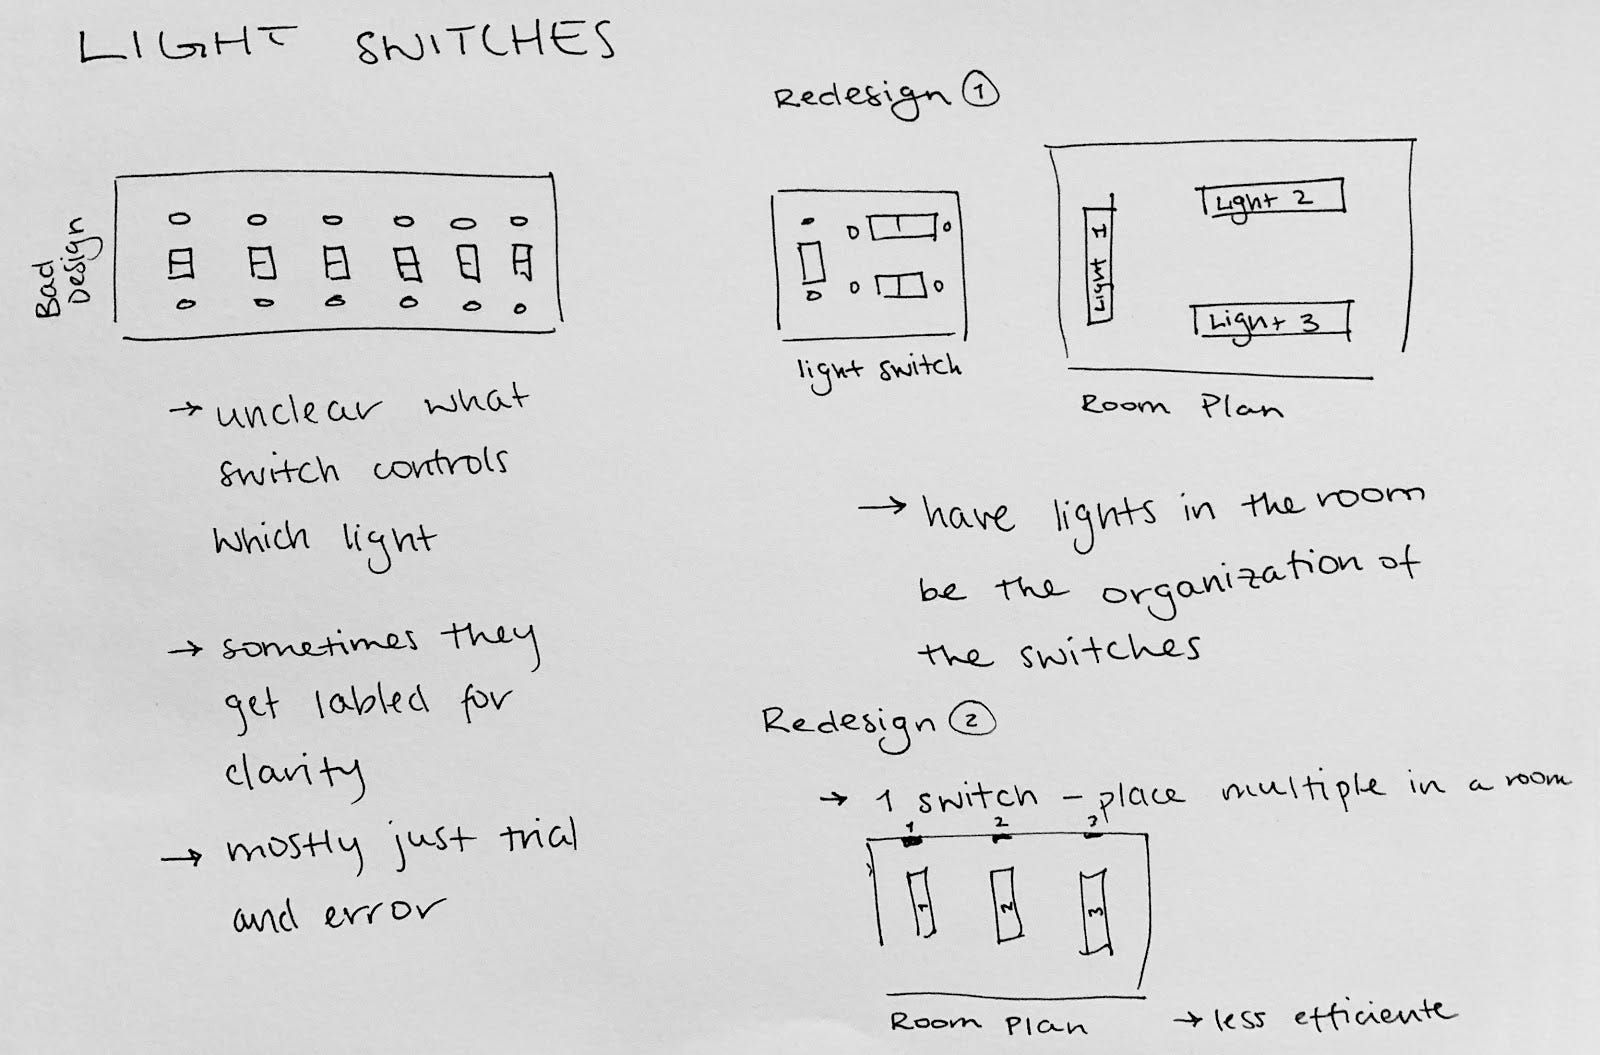 LIGHT SWITCHES
Bad
Design
→ unclear what
switch controls
which light
→ sometimes they
get labled for
clarity
→ mostly just trial
and error
Redesign ①
light switch
Light 1
Light 2
Light 3
Room Plan
→ have lights in the room
be the organization of
the switches
Redesign ②
→ 1 switch - place multiple in a room
1 2 3
1 2 3
Room Plan
→ less efficiente